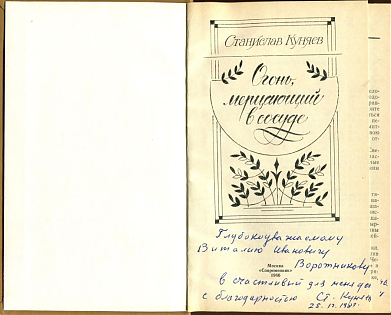 Станислав Куняев
Огонь,
мерцающий
в сосуде
Глубокоуважаемому
Виталию Ивановичу
Воротникову
Москва
«Современник»
1986
в счастливый для меня день
с благодарностью Ст. Куняев